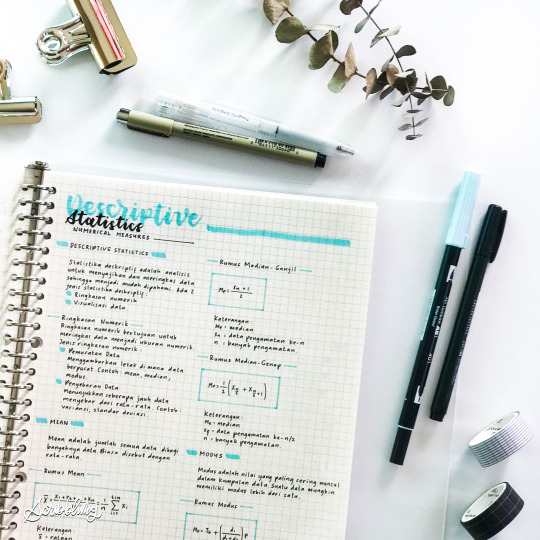 Descriptive
Statistics
NUMERICAL MEASURES
DESCRIPTIVE STATISTICS
Statistika deskriptif adalah analisis
untuk menyajikan dan meringkas data
sehingga menjadi mudah dipahami. Ada 2
jenis statistika deskriptif:
Ringkasan numerik
Visualisasi data
Ringkasan Numerik
Ringkasan numerik bertujuan untuk
meringkas data menjadi ukuran numerik.
Jenis ringkasan numerik:
Pemusatan Data
Menggambarkan letak di mana data
berpusat. Contoh: mean, median,
modus.
Penyebaran Data
Menunjukkan seberapa jauh data
menyebar dari rata-rata. Contoh:
variansi, standar deviasi
MEAN
Mean adalah jumlah semua data dibagi
banyaknya data. Biasa disebut dengan
rata-rata.
Rumus Mean
Keterangan
Rumus Median-Ganjil
Me = X n+1 / 2
Keterangan:
Me = median
n = banyak pengamatan
Rumus Median-Genap
Me = 1/2 (X n/2 + X n/2 + 1)
Keterangan:
Me = median
= data pengamatan ke-n/2
n = banyak pengamatan
MODUS
Modus adalah nilai yang paling sering muncul
dalam kumpulan data. Suatu data mungkin
memiliki modus lebih dari satu.
Rumus Modus